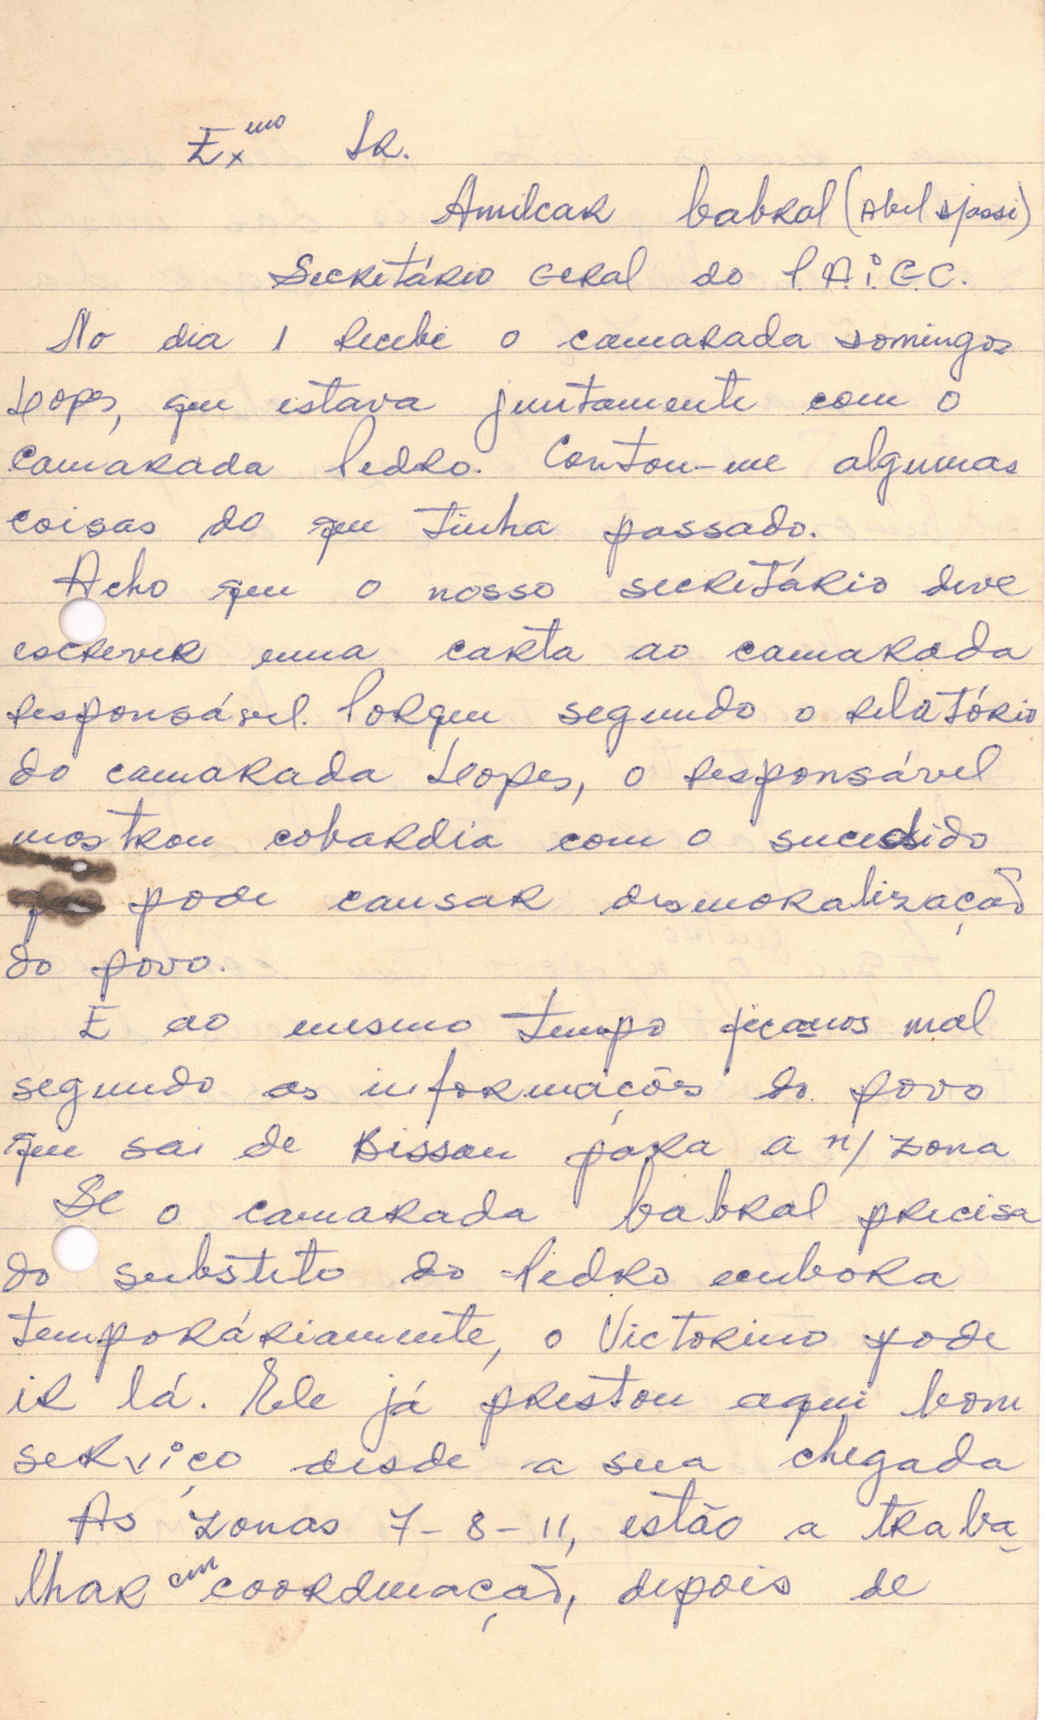 Ex^mo Sr.
Amilcar Cabral (Abel Djassi)
Secretário Geral do P.A.I.G.C.
No dia 1 recebi o camarada Domingos
Lopes, que estava juntamente com o
camarada Pedro. Contou-me algumas
coisas do que tinha passado.
Acho que o nosso secretário deve
escrever uma carta ao camarada
responsável. Porque segundo o relatório
do camarada Lopes, o responsável
mostrou cobardia com o sucedido
pode causar desmoralização
do povo.
E ao mesmo tempo ficamos mal
segundo as informações do povo
que sai de Bissau para a n/ zona
Se o camarada Cabral precisa
do substito do Pedro embora
temporáriamente, o Victorino pode
ir lá. Ele já prestou aqui bom
serviço desde a sua chegada
As zonas 7-8-11, estão a traba
lhar em coordenação, depois de